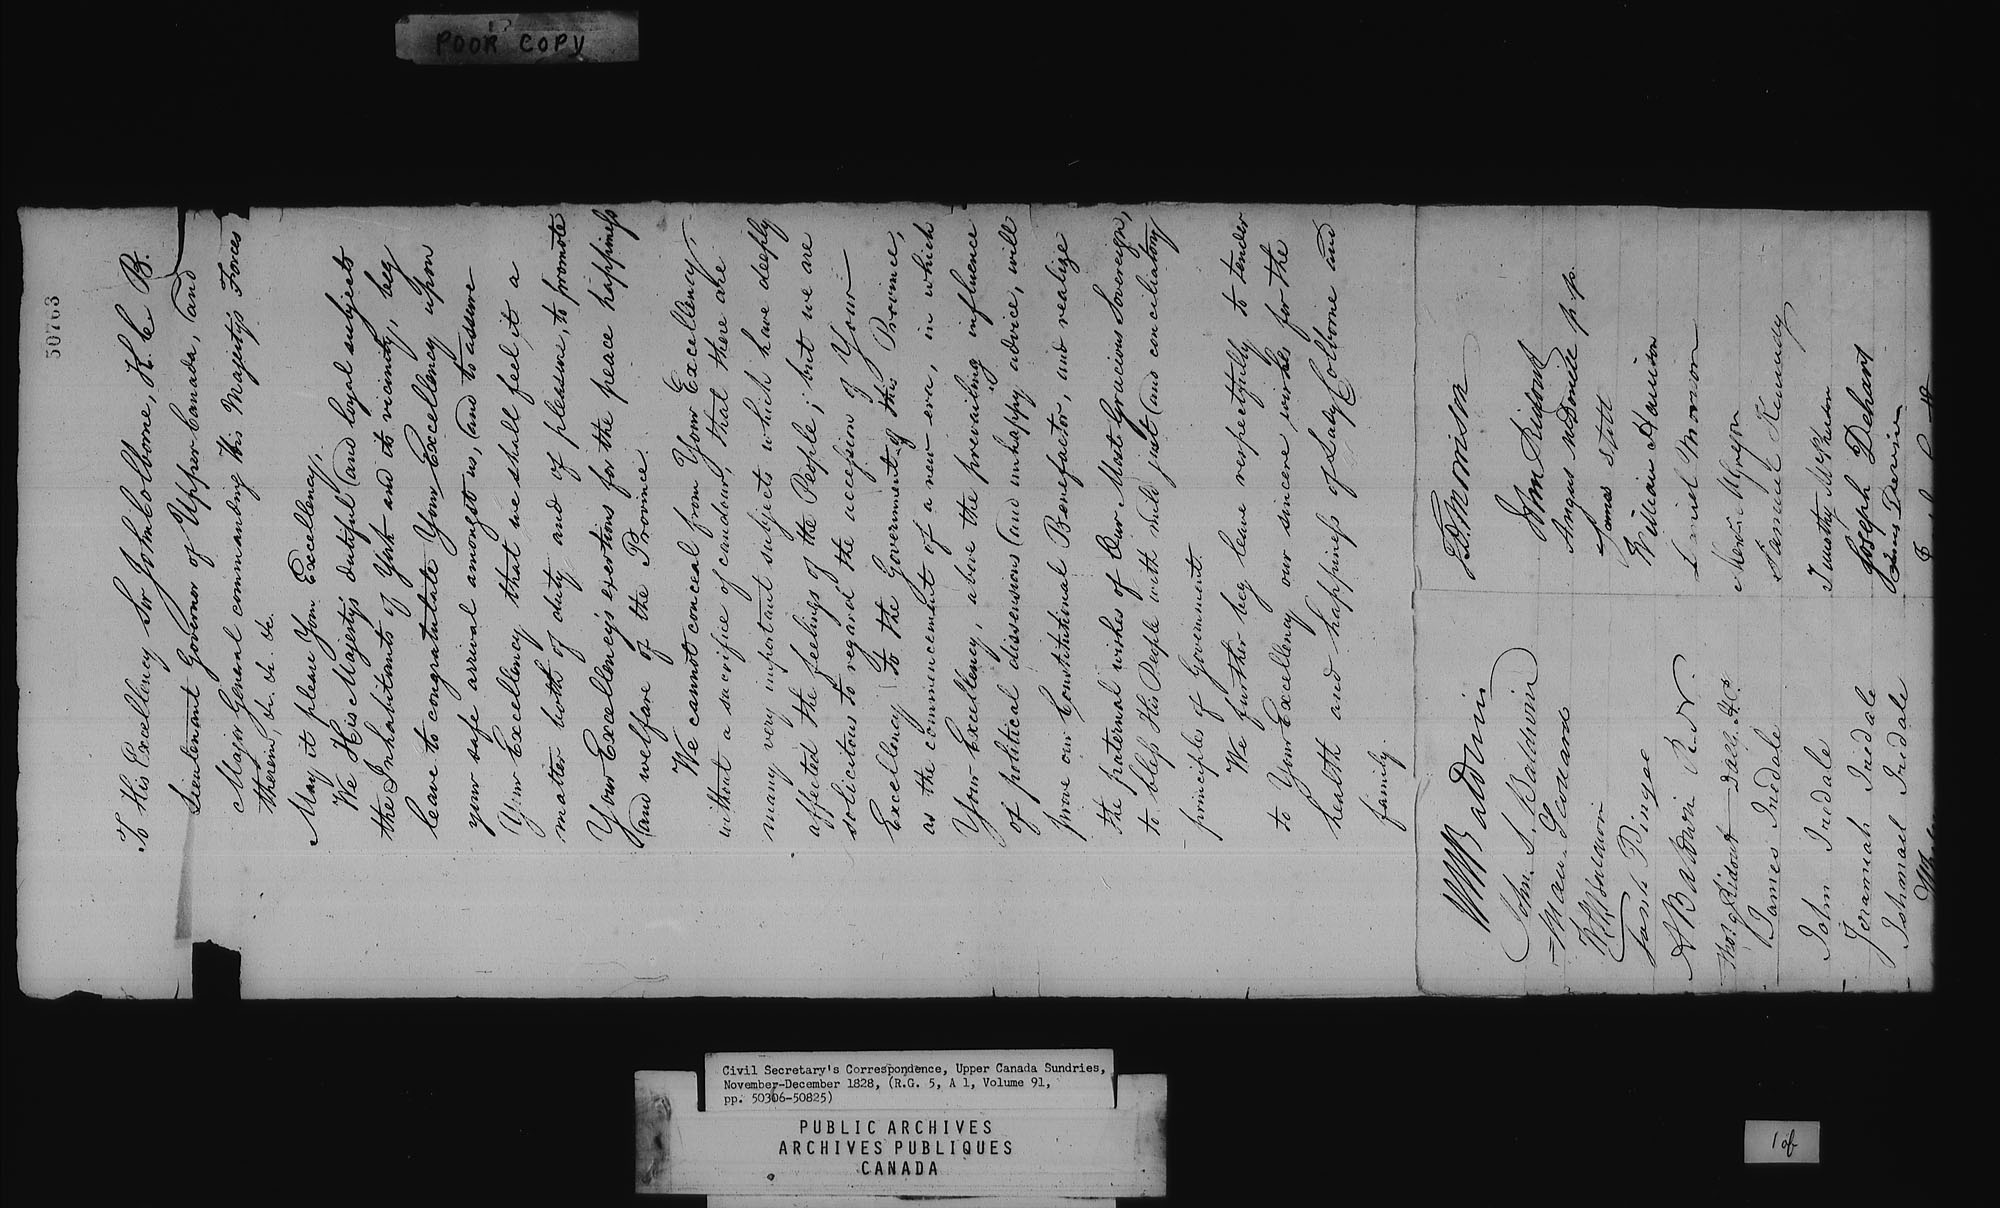 POOR COPY
50763
To His Excellency Sir John Colborne, K. C. B.
Lieutenant Governor of Upper Canada, and
Major General commanding His Majesty's Forces
therein, &c. &c. &c.
May it please Your Excellency,
We His Majesty's dutiful and loyal subjects
the Inhabitants of York and its vicinity, beg
leave to congratulate Your Excellency upon
your safe arrival amongst us, and to assure
Your Excellency that we shall feel it a
matter both of duty and of pleasure, to promote
Your Excellency's exertions for the peace happiness
and welfare of the Province.
We cannot conceal from Your Excellency,
without a sacrifice of candour, that there are
many very important subjects which have deeply
affected the feelings of the People; but we are
solicitous to regard the accession of Your
Excellency to the Government of this Province,
as the commencement of a new era, in which
Your Excellency, above the prevailing influence
of political dissensions and unhappy advice, will
prove our Constitutional Benefactor, and realize
the paternal wishes of Our Most Gracious Sovereign,
to bless His People with mild just and conciliatory
principles of Government.
We further beg leave respectfully to tender
to Your Excellency our sincere wishes for the
health and happiness of Lady Colborne and
family.
WW Baldwin
John S. Baldwin
Leonard
Pingee
A Baldwin R. N.
Thos. Ridout
James Iredale
John Iredale
Jeramiah Iredale
Ishmael Iredale
T D Morrison
Wm Ridout
Angus McDonell p.p.
James Stitt
William Harrison
Daniel Morrison
Samuel Kennedy
Timothy McPhedron
Joseph Dehart
James Devine
Civil Secretary's Correspondence, Upper Canada Sundries,
November-December 1828, (R.G. 5, A 1, Volume 91,
pp. 50306-50825)
PUBLIC ARCHIVES
ARCHIVES PUBLIQUES
CANADA
1 of